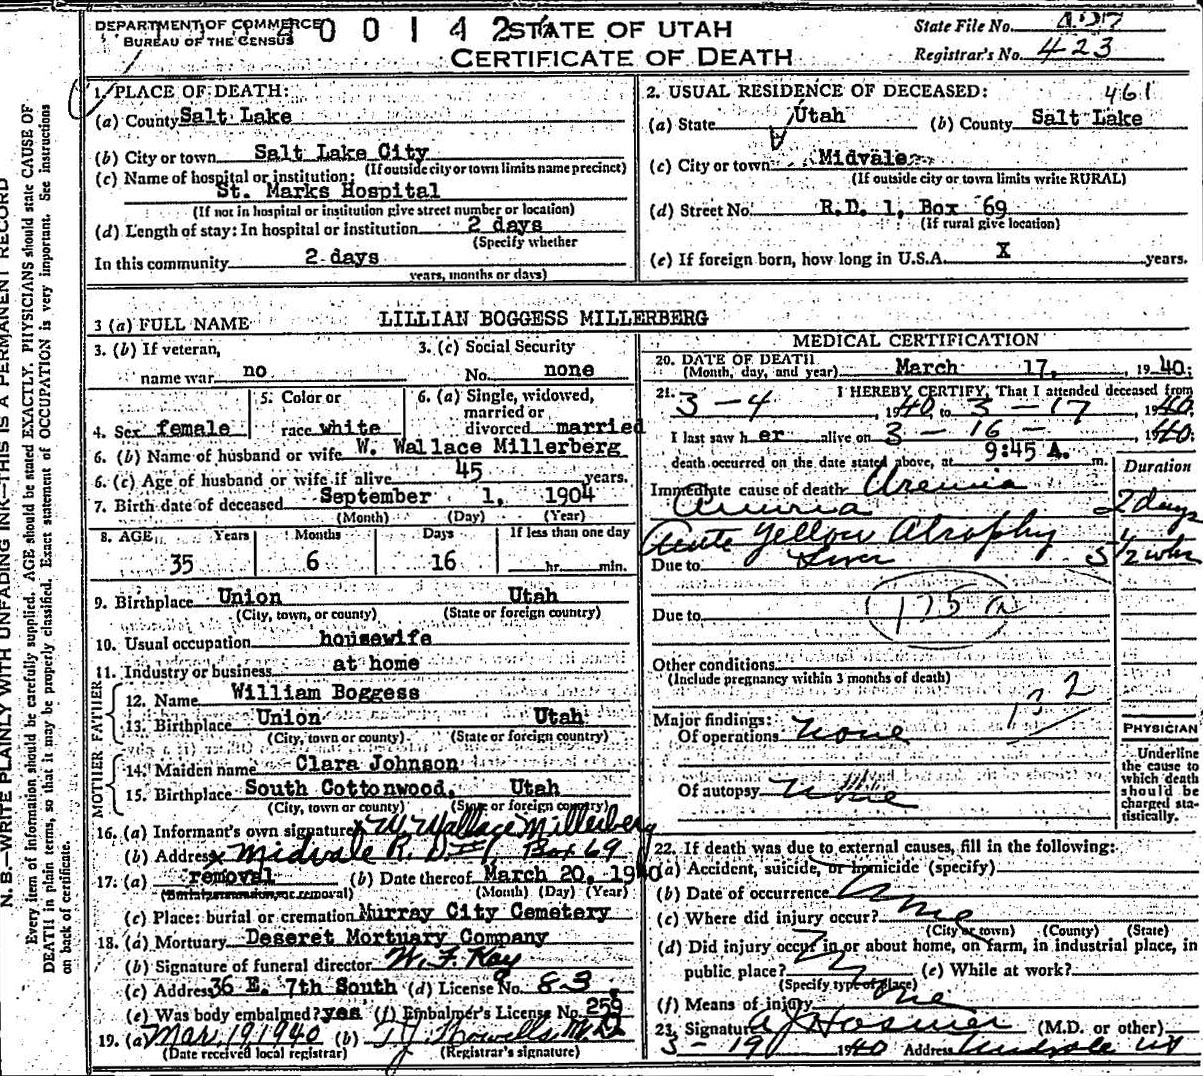 DEPARTMENT OF COMMERCE
BUREAU OF THE CENSUS
0 0 1 4 2
STATE OF UTAH
CERTIFICATE OF DEATH
State File No.
Registrar's No. 423
1. PLACE OF DEATH:
(a) County Salt Lake
(b) City or town Salt Lake City
(If outside city or town limits name precinct)
(c) Name of hospital or institution:
St. Marks Hospital
(If not in hospital or institution give street number or location)
(d) Length of stay: In hospital or institution 2 days
(Specify whether
In this community 2 days
years, months or days)
2. USUAL RESIDENCE OF DECEASED: 461
(a) State Utah (b) County Salt Lake
(c) City or town Midvale
(If outside city or town limits write RURAL)
(d) Street No. R.D. 1, Box 69
(If rural give location)
(e) If foreign born, how long in U.S.A. X years.
3 (a) FULL NAME LILLIAN BOGGESS MILLERBERG
3. (b) If veteran, name war no
3. (c) Social Security No. none
4. Sex female
5. Color or race white
6. (a) Single, widowed, married or divorced married
6. (b) Name of husband or wife W. Wallace Millerberg
6. (c) Age of husband or wife if alive 45 years.
7. Birth date of deceased September 1, 1904
(Month) (Day) (Year)
8. AGE Years Months Days If less than one day
35 6 16 hr. min.
9. Birthplace Union Utah
(City, town, or county) (State or foreign country)
10. Usual occupation housewife
11. Industry or business at home
FATHER
12. Name William Boggess
13. Birthplace Union Utah
(City, town or county) (State or foreign country)
MOTHER
14. Maiden name Clara Johnson
15. Birthplace South Cottonwood, Utah
(City, town or county) (State or foreign country)
16. (a) Informant's own signature x W. Wallace Millerberg
(b) Address x Midvale R. D #1, Box 69
17. (a) removal (b) Date thereof March 20, 1940
(Burial, cremation, or removal) (Month) (Day) (Year)
(c) Place: burial or cremation Murray City Cemetery
18. (a) Mortuary Deseret Mortuary Company
(b) Signature of funeral director W. F. Kay
(c) Address 36 E. 7th South (d) License No. 83
(e) Was body embalmed? yes (f) Embalmer's License No. 259
19. (a) Mar. 19 1940 (b) T. J. Howells M.D.
(Date received local registrar) (Registrar's signature)
MEDICAL CERTIFICATION
20. DATE OF DEATH
(Month, day, and year) March 17, 1940.
21. I HEREBY CERTIFY, That I attended deceased from
3-4, 1940, to 3-17, 1940.
I last saw her alive on 3-16-, 1940.
death occurred on the date stated above, at 9:45 A. m.
Duration
Immediate cause of death Uremia
Anuria 2 days
Acute Yellow Atrophy
Due to Liver
Due to
Other conditions
(Include pregnancy within 3 months of death)
132
Major findings:
Of operations none
Of autopsy none
PHYSICIAN
Underline
the cause to
which death
should be
charged sta-
tistically.
22. If death was due to external causes, fill in the following:
(a) Accident, suicide, or homicide (specify)
(b) Date of occurrence
(c) Where did injury occur?
(City or town) (County) (State)
(d) Did injury occur in or about home, on farm, in industrial place, in
public place? (e) While at work?
(Specify type of place)
(f) Means of injury
23. Signature A J Hosmer (M.D. or other)
3-19 1940 Address Midvale Ut
N.B.—WRITE PLAINLY WITH UNFADING INK—THIS IS A PERMANENT RECORD
Every item of information should be carefully supplied. AGE should be stated EXACTLY. PHYSICIANS should state CAUSE OF
DEATH in plain terms, so that it may be properly classified. Exact statement of OCCUPATION is very important. See instructions
on back of certificate.